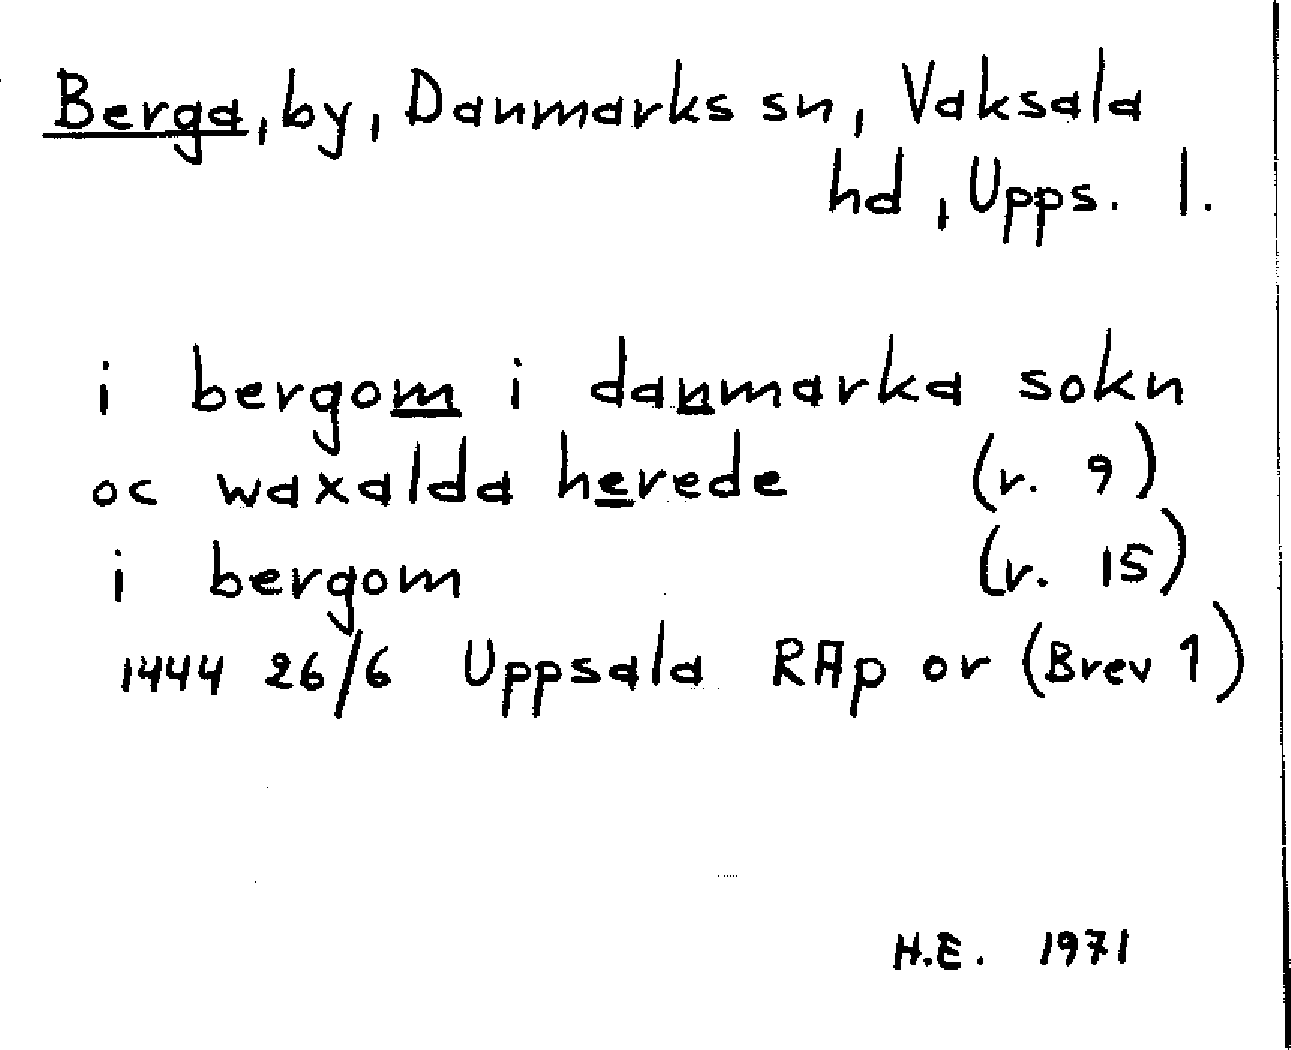 Berga, by, Danmarks sn, Vaksala
hd, Upps. l.
i bergom i danmarka sokn
oc waxalda herede (r. 9)
i bergom (r. 15)
1444 26/6 Uppsala RAp or (Brev 1)
H.E. 1971